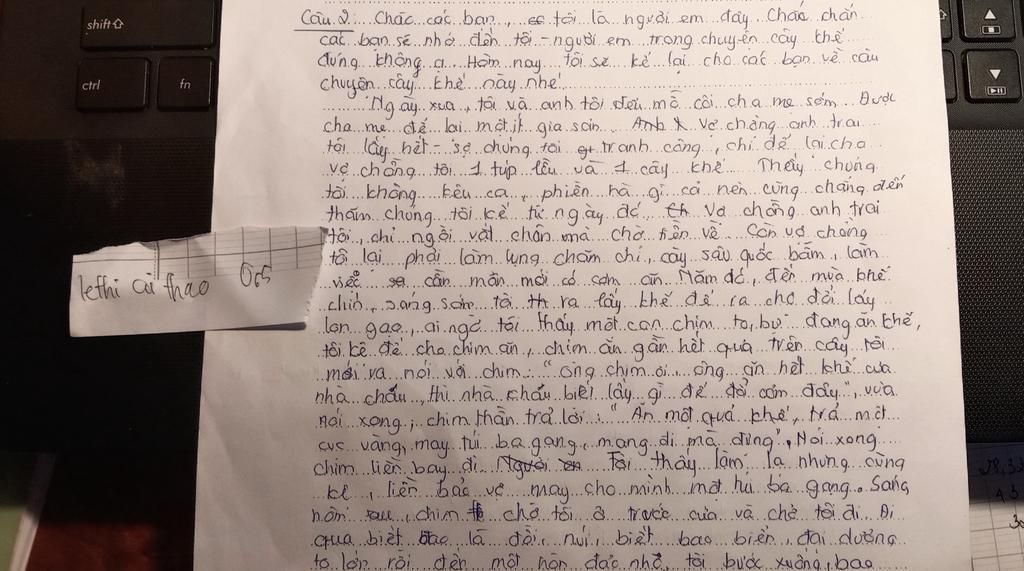 shift⇧
ctrl
fn
Câu 2: Chắc các bạn, tôi là người em đây. Chắc chắn
các bạn sẽ nhớ đến tôi - người em trong chuyện cây khế
đúng không ạ. Hôm nay tôi sẽ kể lại cho các bạn về câu
chuyện cây khế này nhé.
Ngày xưa, tôi và anh tôi đều mồ côi cha mẹ sớm. Được
cha mẹ để lại một ít gia sản. Vợ chồng anh trai
tôi lấy hết - sợ chúng tôi tranh công, chỉ để lại cho
vợ chồng tôi 1 túp lều và 1 cây khế. Thấy chúng
tôi không kêu ca, phiền hà gì cả nên cũng chẳng đến
thăm chúng tôi kể từ ngày đó, Vợ chồng anh trai
tôi, chỉ ngồi vắt chân mà chờ tiền về. Còn vợ chồng
tôi lại phải làm lụng chăm chỉ, cày sâu quốc bẫm, làm
việc cần mẫn mới có cơm ăn. Năm đó, đến mùa khế
chín, sáng sớm tôi ra lấy khế để ra chợ đổi lấy
lon gạo, ai ngờ tôi thấy một con chim to, bự đang ăn khế,
tôi kệ để cho chim ăn, chim ăn gần hết quả trên cây tôi
mới ra nói với chim: "ông chim ơi, ông ăn hết khế của
nhà cháu, thì nhà cháu biết lấy gì để đổ cơm đây", vừa
nói xong, chim thần trả lời: "Ăn một quả khế, trả một
cục vàng, may túi ba gang, mang đi mà đựng", Nói xong
chim liền bay đi. Tôi thấy làm lạ nhưng cũng
kệ, liền bảo vợ may cho mình một túi ba gang. Sáng
hôm sau, chim chờ tôi ở trước cửa và chở tôi đi. Đi
qua biết bao là đồi, núi, biết bao biển, đại dương
to lớn rồi đến một hòn đảo nhỏ, tôi bước xuống, bao
lethi cù thao 065